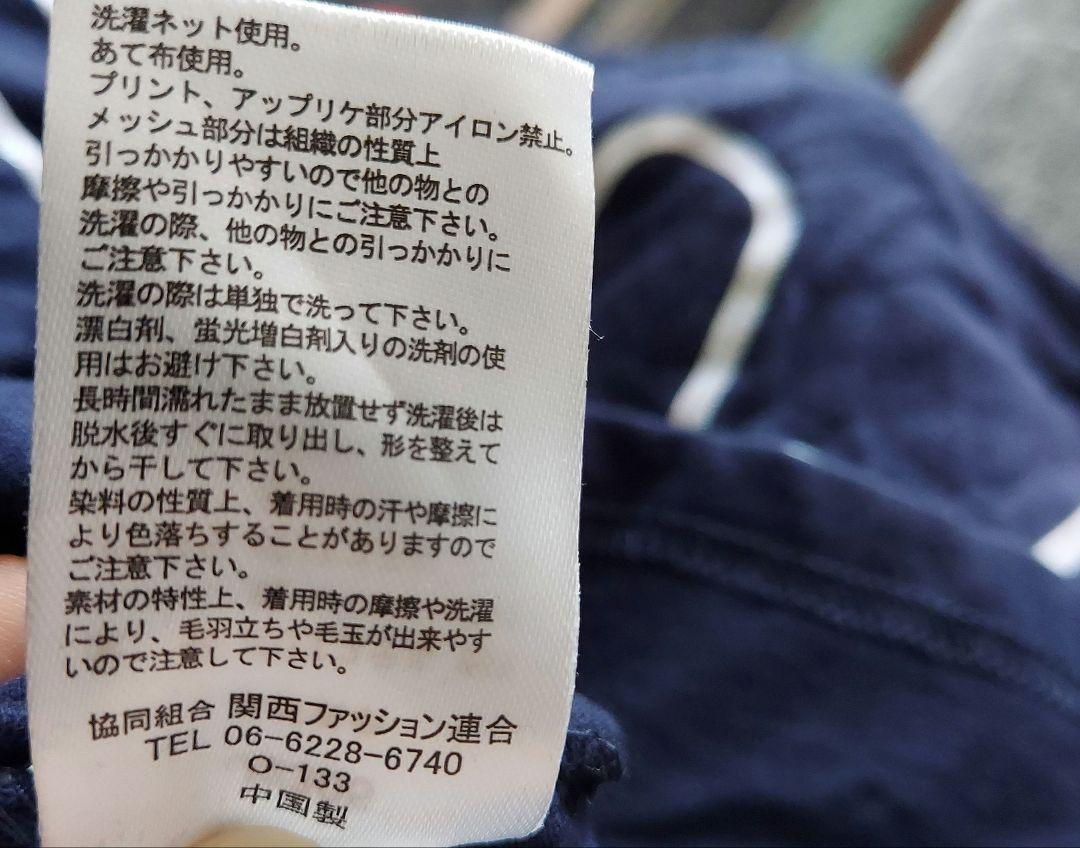 洗濯ネット使用。
あて布使用。
プリント、アップリケ部分アイロン禁止。
メッシュ部分は組織の性質上
引っかかりやすいので他の物との
摩擦や引っかかりにご注意下さい。
洗濯の際、他の物との引っかかりに
ご注意下さい。
洗濯の際は単独で洗って下さい。
漂白剤、蛍光増白剤入りの洗剤の使
用はお避け下さい。
長時間濡れたまま放置せず洗濯後は
脱水後すぐに取り出し、形を整えて
から干して下さい。
染料の性質上、着用時の汗や摩擦に
より色落ちすることがありますので
ご注意下さい。
素材の特性上、着用時の摩擦や洗濯
により、毛羽立ちや毛玉が出来やす
いので注意して下さい。
協同組合 関西ファッション連合
TEL 06-6228-6740
O-133
中国製